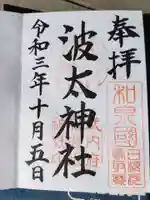 奉拝
和泉國
波太神社
令和三年十月五日